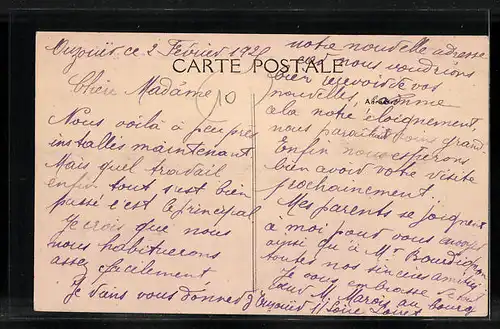 Ouzouër ce 2 Février 192
CARTE POSTALE
Chère Madame
10
Nous voilà à peu près
installés maintenant
Mais quel travail
enfin tout s'est bien
passé c'est le principal
Je crois que nous
nous habituerons
assez facilement
Je vais vous donner
notre nouvelle adresse
nous voudrions
bien recevoir de vos
nouvelles, comme
cela notre éloignement,
nous paraîtrait moins grand.
Enfin nous espérons
bien avoir votre visite
prochainement.
Mes parents se joignent
à moi pour vous envoyer
ainsi qu'à Mr
toutes nos sincères amitiés
Je vous embrasse
M. Marois au bourg
Ouzouer s/ Loire Loiret